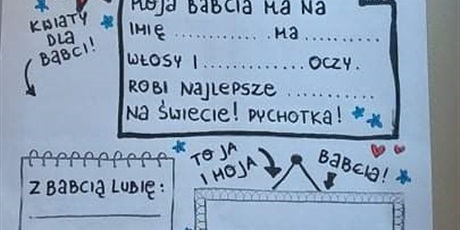 MOJA BABCIA MA NA
IMIĘ ............... MA ...........
WŁOSY I ............ OCZY.
ROBI NAJLEPSZE ............
NA ŚWIECIE! PYCHOTKA!
KWIATY
DLA
BABCI!
Z BABCIĄ LUBIĘ:
TO JA
I MOJA
BABCIA!